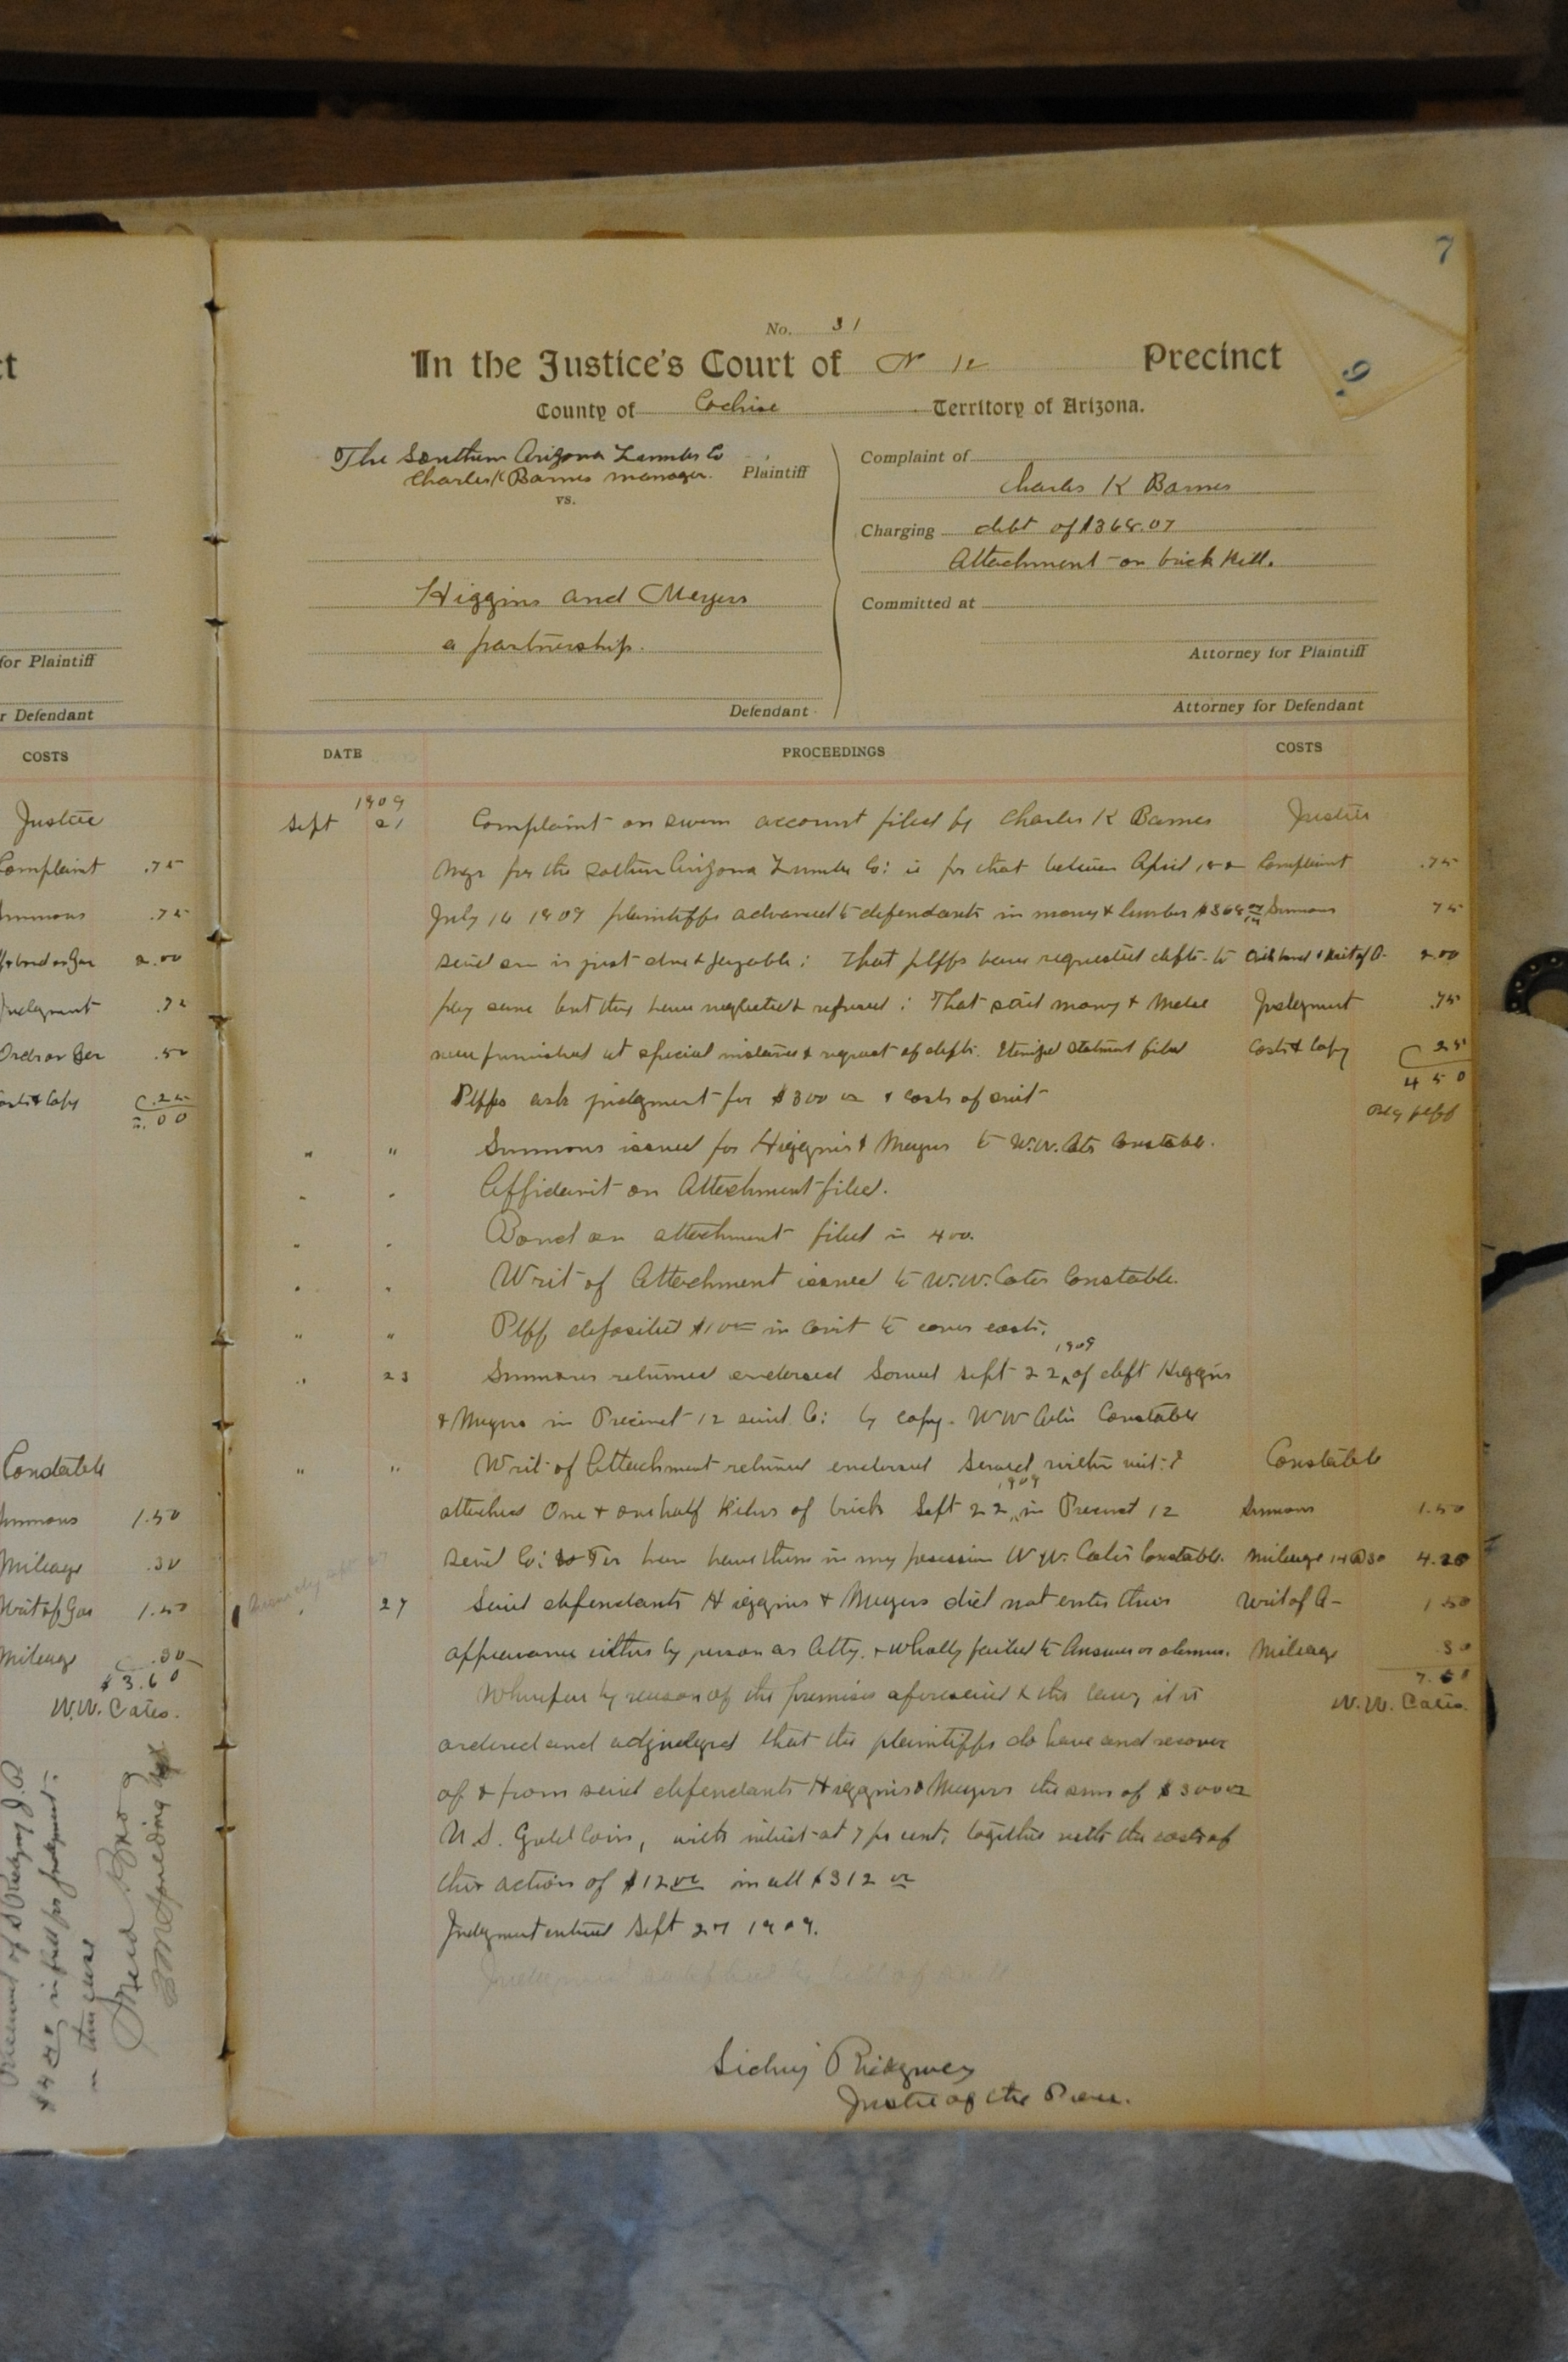 ct
for Plaintiff
r Defendant
COSTS
Justice
Complaint .75
ummons .75
2.00
Judgment .75
Order on Gar .50
Costs & Copy .25
5.00
Constable
ummons 1.50
Mileage .30
Writ of Gar 1.50
Mileage .30
$3.60
W.W. Cates.
in full for judgment
in this case
7
No. 31
In the Justice's Court of No 12 Precinct
County of Cochise Territory of Arizona.
The Southern Arizona Lumber Co
Charles K Barnes manager. Plaintiff
vs.
Higgins and Meyers
a partnership.
Defendant
Complaint of
Charles K Barnes
Charging debt of $368.07
Attachment on brick kill.
Committed at
Attorney for Plaintiff
Attorney for Defendant
DATE PROCEEDINGS COSTS
1909
Sept 21 Complaint on sworn account filed by Charles K Barnes Justice
Mgr for the Southern Arizona Lumber Co: is for that between April and Complaint .75
July 16 1909 plaintiffs advanced to defendants in money & lumber $368 07 Summons 75
said sum is just due & payable: That plffs have requested defts to Writ of A. 2.00
pay same but they have neglected & refused: That said money & Mdse Judgment .75
were furnished at special instance & request of defts. Itemized Statement filed Costs & Copy 25
4 50
Plffs ask judgment for $300 00 & costs of suit
" " Summons issued for Higgins & Meyers to W.W. Cates Constable.
" " Affidavit on Attachment filed.
" " Bond on attachment filed in 400.
" " Writ of Attachment issued to W.W. Cates Constable.
" " Plff deposited $10 00 in Court to cover costs.
" 23 Summons returned endorsed Served Sept 22 1909 of deft Higgins
& Meyers in Precinct 12 said Co: by copy. W W Cates Constable
" " Writ of Attachment returned endorsed Served within writ & Constable
attached One & one half Kilns of brick Sept 22 1909 in Precinct 12 Summons 1.50
said Co: & Ter have them in my possession W.W. Cates Constable. Mileage 14 @ 30 4.20
" 27 Said defendants Higgins & Meyers did not enter their Writ of A- 1 50
appearance either by person or Atty. & wholly failed to Answer or demur. Mileage 30
7.50
W.W. Cates.
Wherefore by reason of the premises aforesaid & the law, it is
ordered and adjudged that the plaintiffs do have and recover
of & from said defendants Higgins & Meyers the sum of $300 00
U.S. Gold Coin, with interest at 7 per cent, together with the costs of
this action of $12 00 in all $312 00
Judgment entered Sept 27 1909.
Sidney Ridgway
Justice of the Peace.